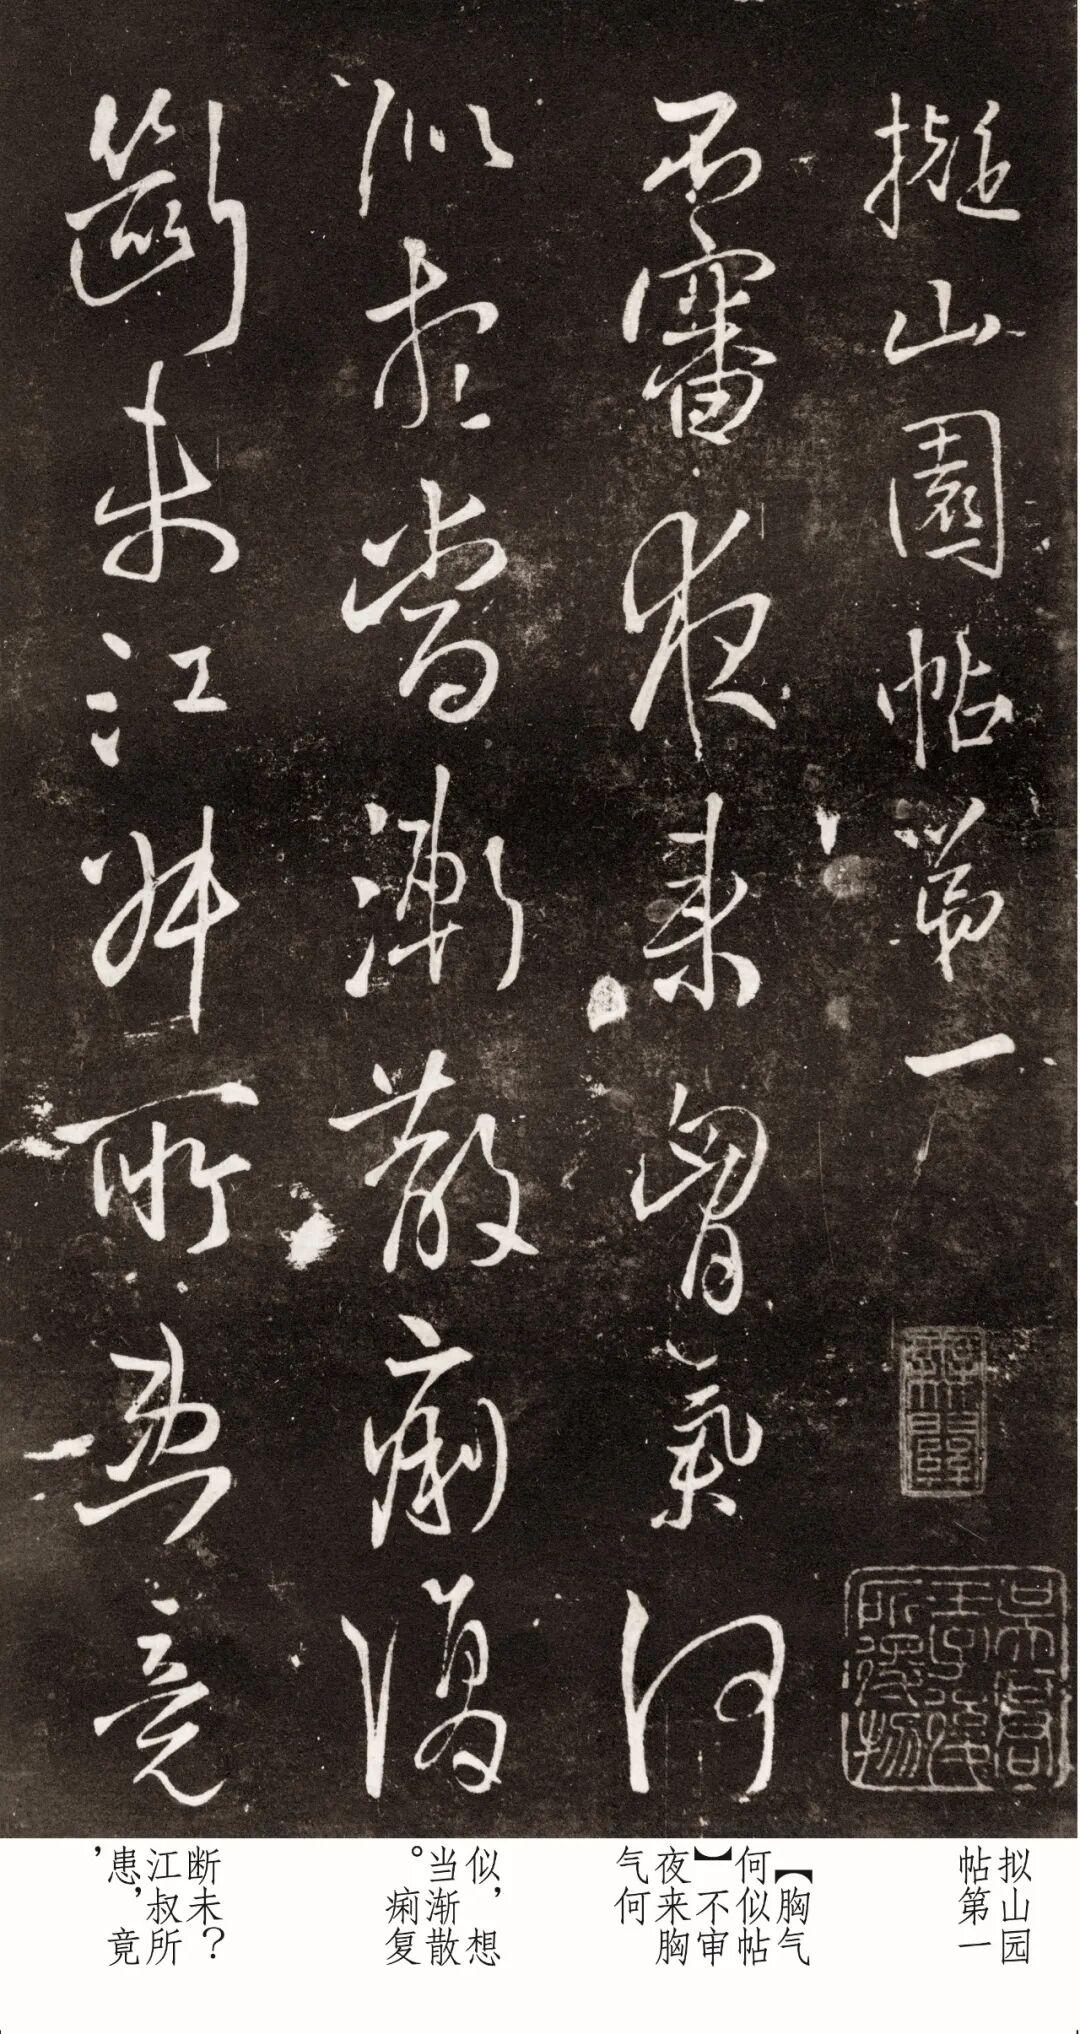 擬山園帖第一
不審夜来胷氣何
似想當漸散痢復
斷未江叔所患竟
拟山园
帖第一
【胸气
何似帖
】不审
夜来胸
气何
似，想
当渐散
。痢复
断未？
江叔所
患，竟
，